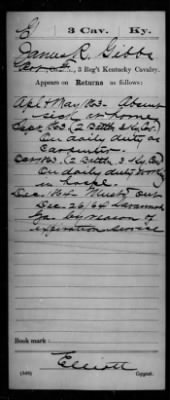 G 3 Cav. Ky.
James R. Gibbs
3 Reg't Kentucky Cavalry.
Appears on Returns as follows:
Apl & May /63. Absent
sick at home
Sept /63. (2 Battn 3 Ky Cav)
On daily duty as
Carpenter.
/63. (2 Battn 3 Ky Cav)
On daily duty
in hospl.
Dec. 1864 Must'd out
Dec. 26/64 Savannah
Ga. by reason of
expiration service
Book mark:
Elliott
(546) Copyist.